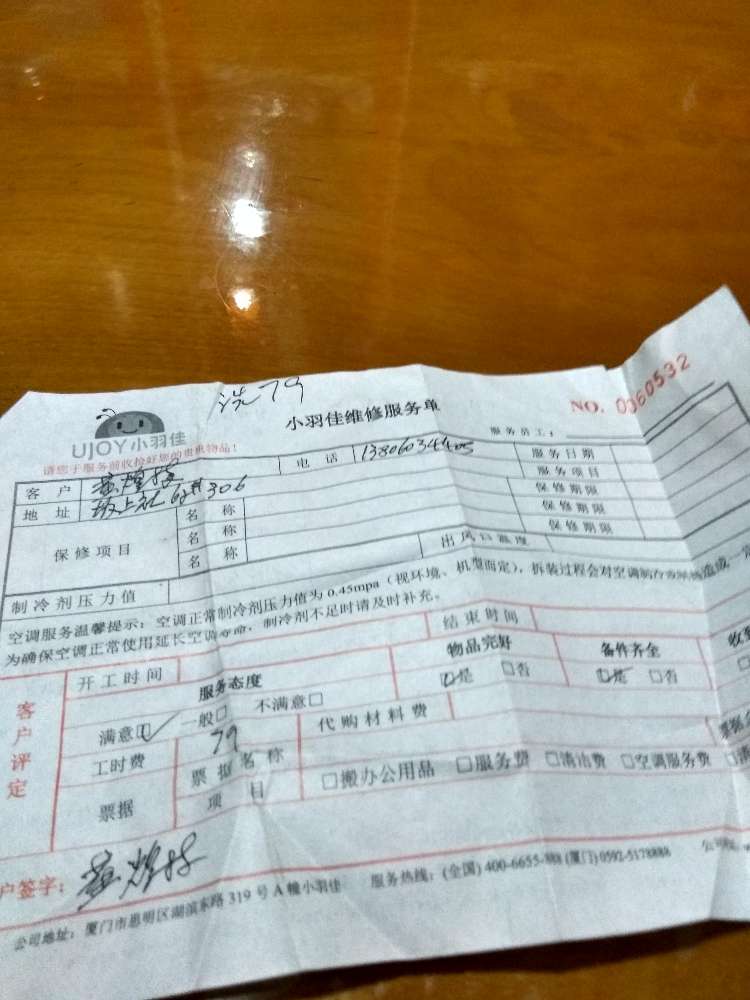 洗79
UJOY小羽佳
小羽佳维修服务单
NO. 0360532
请您于服务前收拾好您的贵重物品!
服务员工:
客户
电话 13806034405
服务日期
地址
306
服务项目
保修项目
名称
保修期限
名称
保修期限
名称
保修期限
制冷剂压力值
出风口温度
空调服务温馨提示:空调正常制冷剂压力值为 0.45mpa(视环境、机型而定),拆装过程会对空调制冷效果造成一
为确保空调正常使用延长空调寿命,制冷剂不足时请及时补充。
客户评定
开工时间
结束时间
服务态度
物品完好
备件齐全
满意☑ 一般□ 不满意□
☑是 □否
☑是 □否
工时费 79
代购材料费
票据
票据名称
项目
□搬办公用品 □服务费 □清洁费 □空调服务费
户签字:
公司地址:厦门市思明区湖滨东路 319 号 A 幢小羽佳
服务热线:(全国) 400-6655-888 (厦门) 0592-5178888